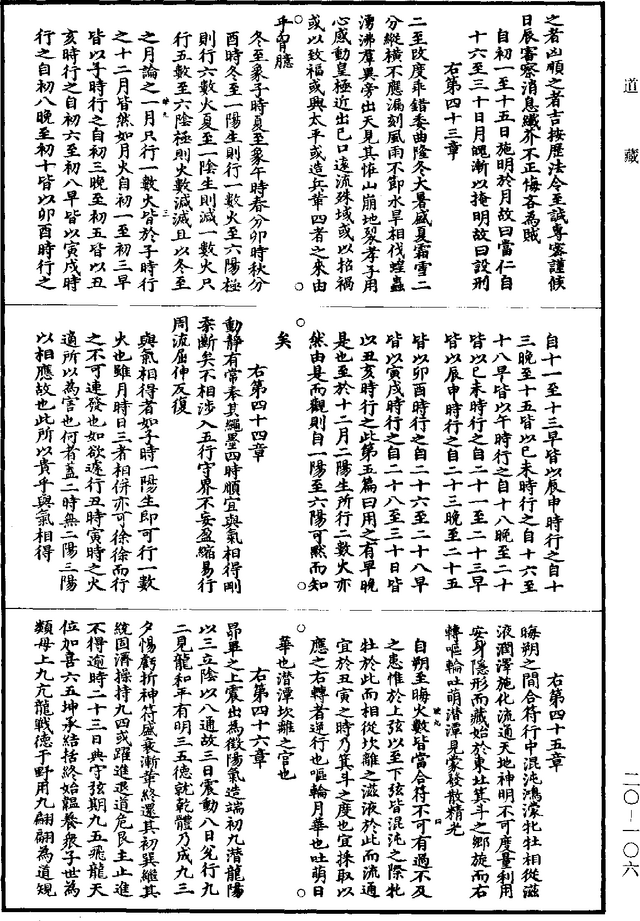 道藏
之者凶順之者吉按歷法令至誠專密謹候
日辰審察消息纖芥不正悔吝為賊
自初一至十五日施明於月故曰當仁自
十六至三十日月魄漸以掩明故曰設刑
右第四十三章
二至改度乖錯委曲隆冬大暑盛夏霜雪二
分縱橫不應漏刻風雨不節水旱相伐蝗蟲
湧沸羣異旁出天見其怪山崩地裂孝子用
心感動皇極近出己口遠流殊域或以招禍
或以致福或興太平或造兵革四者之來由
乎胷臆
冬至象子時夏至象午時春分卯時秋分
酉時冬至一陽生則行一數火至六陽極
則行六數火夏至一陰生則減一數火只
行五數至六陰極則火數減減且以冬至
之月論之一月只行一數火皆於子時行
之十二月皆然如月火自初一至初三早
皆以子時行之自初三晚至初五皆以丑
亥時行之自初六至初八早皆以寅戌時
行之自初八晚至初十皆以卯酉時行之
自十一至十三早皆以辰申時行之自十
三晚至十五皆以巳未時行之自十六至
十八早皆以午時行之自十八晚至二十
皆以巳未時行之自二十一至二十三早
皆以辰申時行之自二十三晚至二十五
皆以卯酉時行之自二十六至二十八早
皆以寅戌時行之自二十八至三十日皆
以丑亥時行之此第五篇曰用之有早晚
是也至於十二月二陽生所行二數火亦
然由是而觀則自一陽至六陽可默而知
矣
右第四十四章
動靜有常奉其繩墨四時順宜與氣相得剛
柔斷矣不相涉入五行守界不妄盈縮易行
周流屈伸反復
與氣相得者如子時一陽生即可行一數
火也雖月時日三者相併亦可徐徐而行
之不可連發也如欲遽行丑時寅時之火
適所以為害也何者蓋二時無二陽三陽
以相應故也此所以貴乎與氣相得
右第四十五章
晦朔之間合符行中混沌鴻濛牝牡相從滋
液潤澤施化流通天地神明不可度量利用
安身隱形而藏始於東北箕斗之鄉旋而右
轉嘔輪吐萌潛潭見象發散精光
自朔至晦火數皆當合符不可有過不及
之患惟於上弦以至下弦皆混沌之際牝
牡於此而相從坎離之滋液於此而流通
宜於丑寅之時乃箕斗之度也宜採取以
應之右轉者逆行也嘔輪月華也吐萌日
華也潛潭坎離之宮也
右第四十六章
昴畢之上震出為徵陽氣造端初九潛龍陽
以三立陰以八通故三日震動八日兌行九
二見龍和平有明三五德就乾體乃成九三
夕惕虧折神符盛衰漸革終還其初巽繼其
統固濟操持九四或躍進退道危艮主止進
不得逾時二十三日典守弦期九五飛龍天
位加喜六五坤承結括終始韞養衆子世為
類母上九亢龍戰德于野用九翩翩為道規
二〇—一〇六